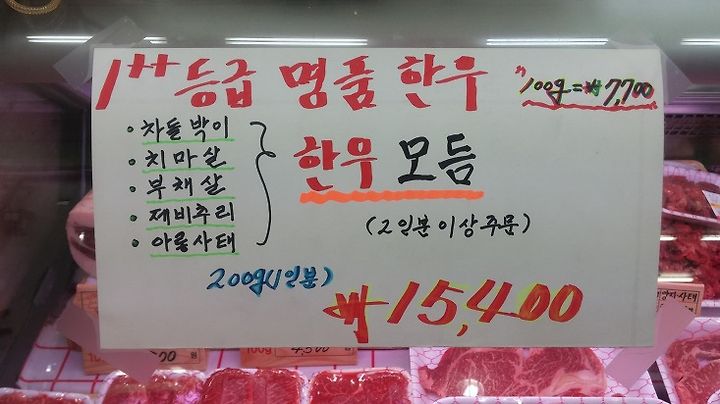 1++ 등급 명품 한우 "100g=₩7,700
• 차돌박이
• 치마살
• 부채살
• 제비추리
• 아롱사태
한우 모듬
(2인분 이상 주문)
200g(1인분)
₩15,400
100g 4,500 원